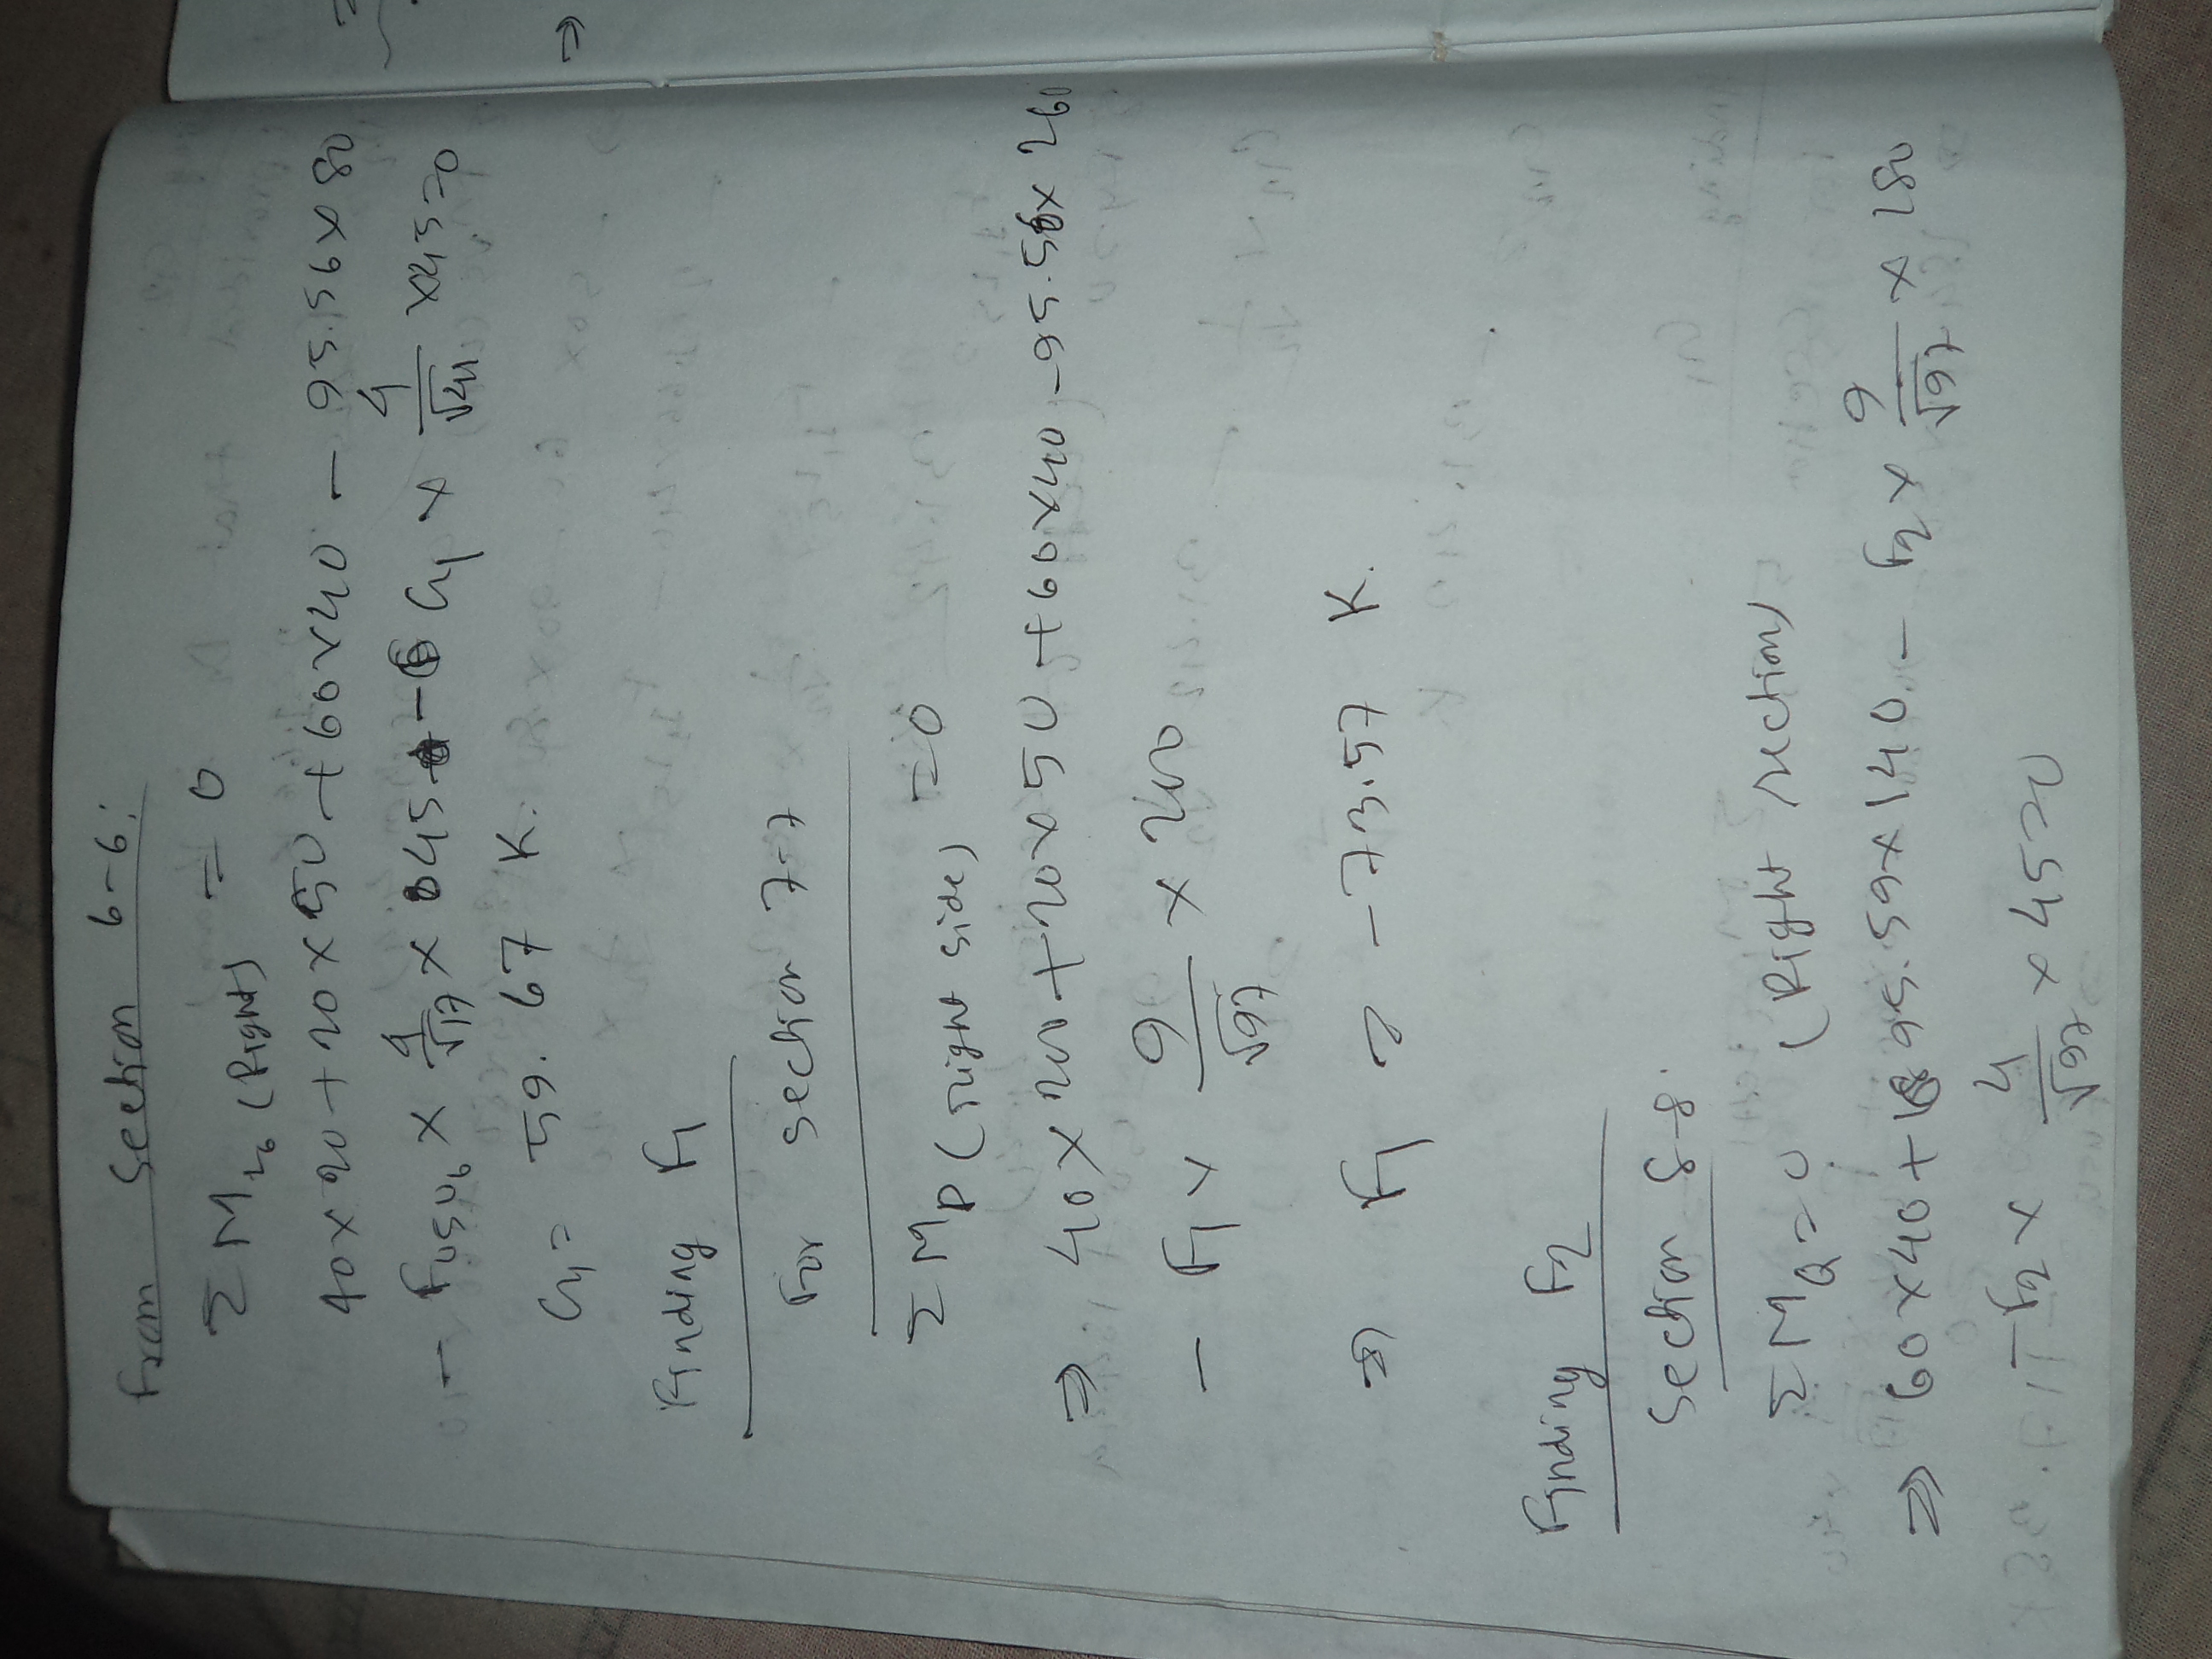 From Section 6-6:
ΣM_L6 (Right) = 0
40×20+20×50+60×40 - 95.56×80
- F_U5U6 × 4/√17 × 45 - G1 × 4/√41 ×45=0
G1 = 59.67 K.
Finding F1
For section 7-7
ΣM_P (right side) =0
⇒ 40×20+20×50+60×40-95.56×260
- F1 × 9/√97 × 240
⇒ F1 = -73.57 K.
Finding F2
Section 8-8.
ΣM_Q=0 (Right section)
⇒ 60×40+ 95.59×140 - F2 × 9/√97 × 180
F2 × 4/√97 × 45=0